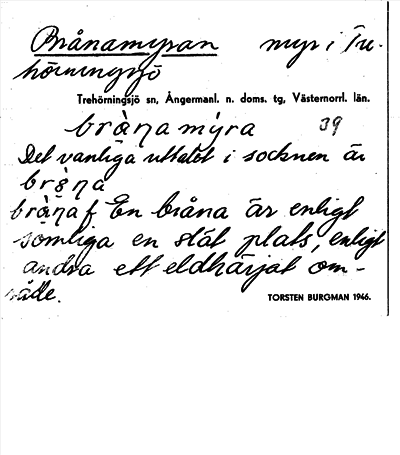 Brånamyran myr i Tre-
hörningsjö
Trehörningsjö sn, Ångermanl. n. doms. tg, Västernorrl. län.
bràṇa mýra 39
Det vanliga uttalet i socknen är
brạ̀ṇa
bràṇa f En bråna är enligt
somliga en slät plats, enligt
andra ett eldhärjat om-
råde.
TORSTEN BURGMAN 1946.